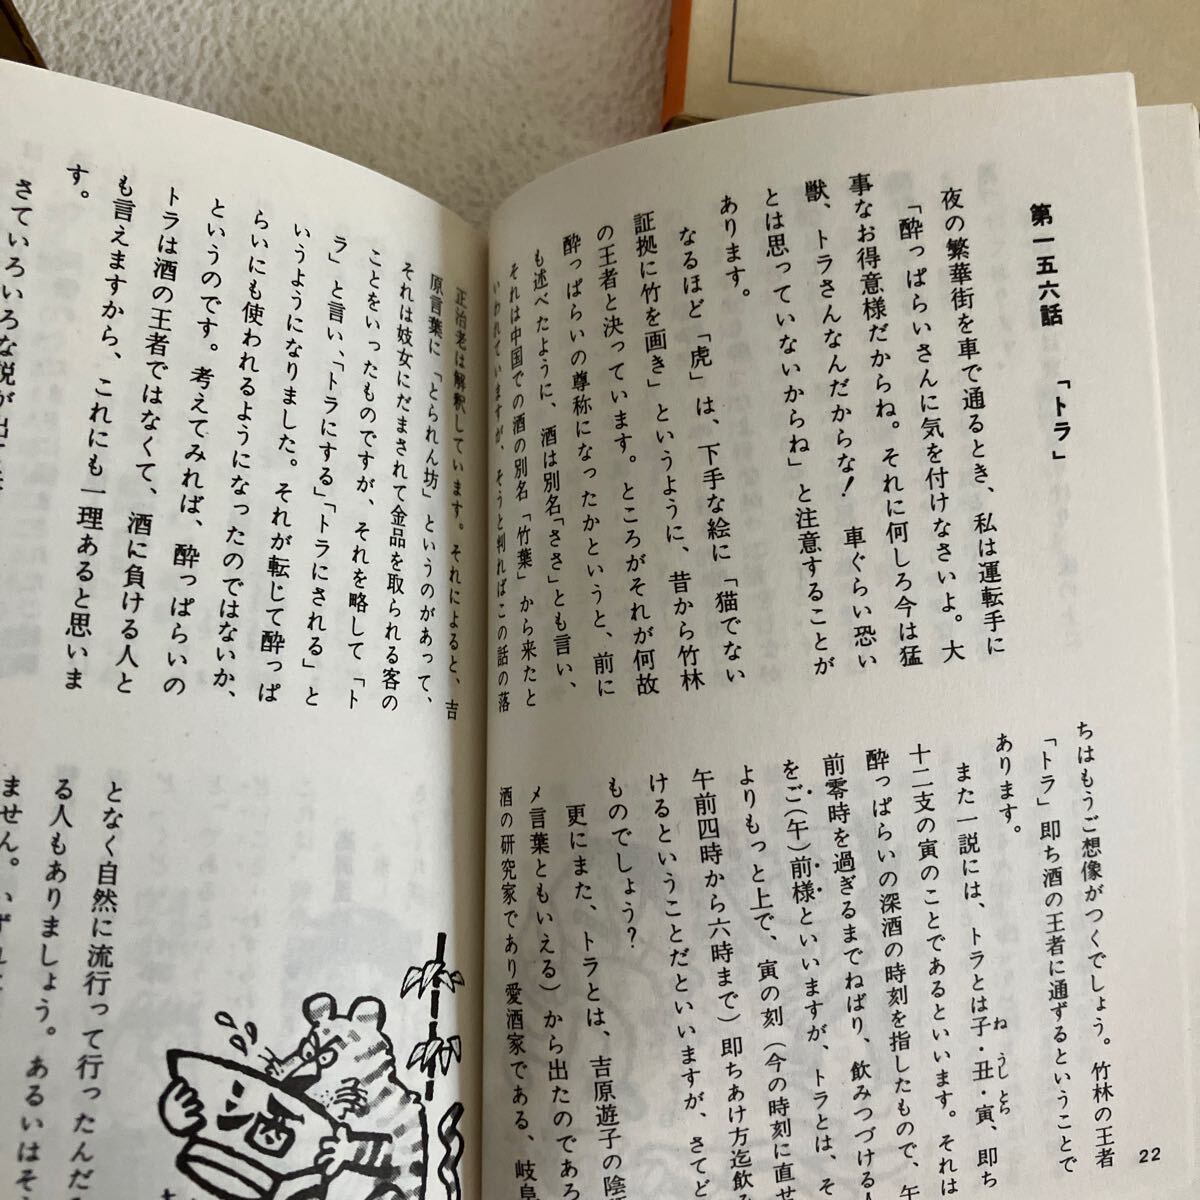 第一五六話　「トラ」
夜の繁華街を車で通るとき、私は運転手に
「酔っぱらいさんに気を付けなさいよ。大
事なお得意様だからね。それに何しろ今は猛
獣、トラさんなんだからな！　車ぐらい恐い
とは思っていないからね」と注意することが
あります。
なるほど「虎」は、下手な絵に「猫でない
証拠に竹を画き」というように、昔から竹林
の王者と決っています。ところがそれが何故
酔っぱらいの尊称になったかというと、前に
も述べたように、酒は別名「ささ」とも言い、
それは中国での酒の別名「竹葉」から来たと
いわれていますが、そうと判ればこの話の落
ちはもうご想像がつくでしょう。竹林の王者
「トラ」即ち酒の王者に通ずるということで
あります。
また一説には、トラとは子・丑・寅、即ち
ね　うし　とら
十二支の寅のことであるといいます。それは
酔っぱらいの深酒の時刻を指したもので、午
前零時を過ぎるまでねばり、飲みつづける人
をご（午）前様といいますが、トラとは、そ
よりもっと上で、寅の刻（今の時刻に直せ
午前四時から六時まで）即ちあけ方迄飲み
けるということだといいますが、さてど
ものでしょう？
更にまた、トラとは、吉原遊子の陰
メ言葉ともいえる）から出たのであろ
酒の研究家であり愛酒家である、岐阜
22
正治老は解釈しています。それによると、吉
原言葉に「とられん坊」というのがあって、
それは妓女にだまされて金品を取られる客の
ことをいったものですが、それを略して「ト
ラ」と言い、「トラにする」「トラにされる」と
いうようになりました。それが転じて酔っぱ
らいにも使われるようになったのではないか、
というのです。考えてみれば、酔っぱらいの
トラは酒の王者ではなくて、酒に負ける人と
も言えますから、これにも一理あると思いま
す。
さていろいろな説が出て
となく自然に流行って行ったんだ
る人もありましょう。あるいはそ
ません。いずれ
酒